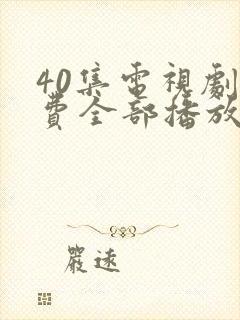 40集電視劇
費全部播放
嚴逺